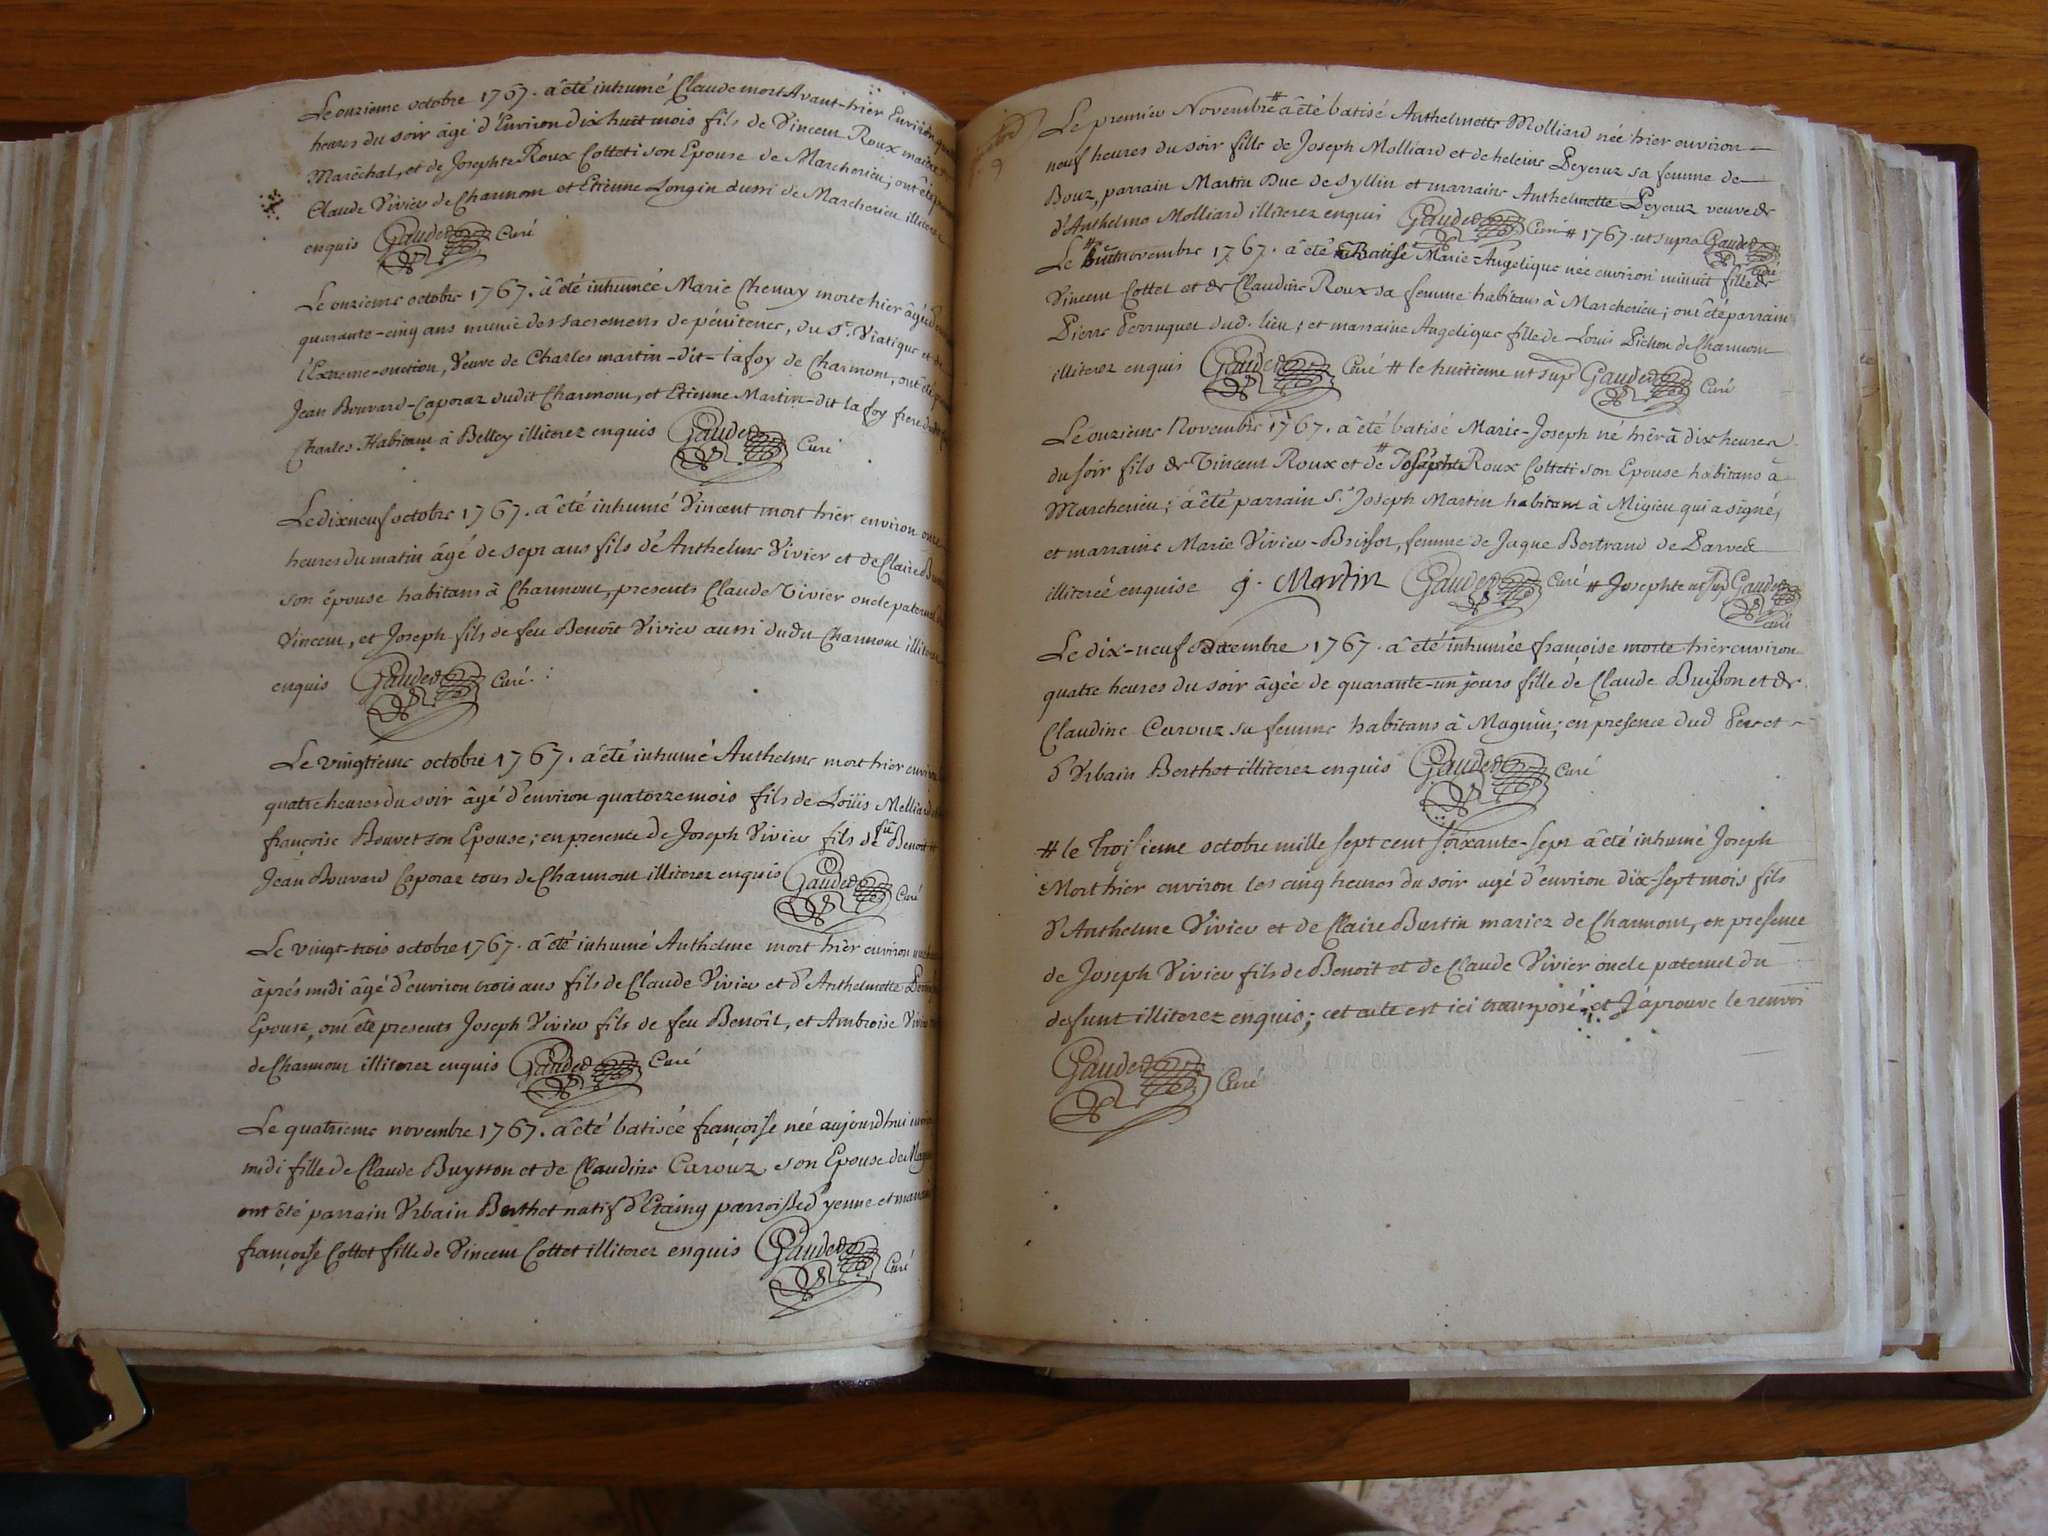 Le onzieme octobre 1767. a été inhumé Claude mort Avant-hier Environ
heures du soir âgé d'Environ dix huit mois fils de Vincent Roux maitre
Maréchal, et de Josephte Roux Colleti son Epouse de Marcherieu; ont été
Claude Vivier de Charmont et Etienne Longin aussi de Marcherieu illiterez
enquis Gaudet Curé
Le onzieme octobre 1767. a été inhumée Marie Chenay morte hier âgée
quarante-cinq ans munie des sacremens de pénitence, du St. Viatique et de
l'Extreme-onction, Veuve de Charles martin-dit-lafoy de Charmont, ont été
Jean Bouvard-Caporaz dudit Charmont, et Etienne Martin-dit la foy frere dudit
Charles Habitant à Belley illiterez enquis Gaudet Curé
Le dixneuf octobre 1767. a été inhumé Vincent mort hier environ onze
heures du matin âgé de sept ans fils d'Anthelme Vivier et de Claire
son épouse habitans à Charmont, presents Claude Vivier oncle paternel
Vincent, et Joseph fils de feu Benoît Vivier aussi dudt Charmont illiterez
enquis Gaudet Curé
Le vingtieme octobre 1767. a été inhumé Anthelme mort hier environ
quatre heures du soir âgé d'environ quatorze mois fils de Loüis Molliard
françoise Bouvet son Epouse; en presence de Joseph Vivier fils de fû Benoit et
Jean Bouvard Caporaz tous de Charmont illiterez enquis Gaudet Curé
Le vingt-trois octobre 1767. a été inhumé Anthelme mort hier environ
après midi âgé d'environ trois ans fils de Claude Vivier et d'Anthelmette
Epouse, ont été presents Joseph Vivier fils de feu Benoît, et Ambroise Vivier
de Charmont illiterez enquis Gaudet Curé
Le quatrieme novembre 1767. a été batisée françoise née aujourdhui environ
midi fille de Claude Buysson et de Claudine Carouz son Epouse de
ont été parrain Urbain Berthet natif d'Etaing parroisse d'yenne et marraine
françoise Collet fille de Vincent Collet illiterez enquis Gaudet Curé
9
Le premier Novembre # a été batisé Anthelmette Molliard née hier environ
neuf heures du soir fille de Joseph Molliard et de heleine Peyeruz sa femme de
Bouz, parrain Martin Duc de Syllin et marraine Anthelmette Peyeruz veuve de
d'Anthelme Molliard illiterez enquis Gaudet Curé # 1767. ut supra Gaudet Curé
Le # huit novembre 1767. a été Batisé Marie-Angelique née environ minuit fille de
Vincent Collet et de Claudine Roux sa femme habitans à Marcherieu; ont été parrain
Pierre Perruquet dud. lieu; et marraine Angelique fille de Louis Pichon de Charmont
illiterez enquis Gaudet Curé # le huitieme ut sup Gaudet Curé
Le onzieme Novembre 1767. a été batisé Marie-Joseph né hier à dix heures
du soir fils de Vincent Roux et de # Josephte Roux Colleti son Epouse habitans à
Marcherieu; a été parrain Sr. Joseph Martin habitant à Migieu qui a signé,
et marraine Marie Vivier-Brissot, femme de Jaque Bertrand de Parvet
illiterée enquise j. Martin Gaudet Curé # Josephte ut sup Gaudet Curé
Le dix-neuf 1767. a été inhumée françoise morte hier environ
quatre heures du soir âgée de quarante-un jours fille de Claude Buisson et de
Claudine Carouz sa femme habitans à Magnin; en presence dud Pere et
d'Urbain Berthet illiterez enquis Gaudet Curé
# le Troisieme octobre mille sept cent soixante-sept a été inhumé Joseph
Mort hier environ les cinq heures du soir agé d'environ dix-sept mois fils
d'Anthelme Vivier et de Claire Burtin mariez de Charmont, en presence
de Joseph Vivier fils de Benoit et de Claude Vivier oncle paternel du
defunt illiterez enquis; cet acte est ici transposé, et J'aprouve le renvoi
Gaudet Curé